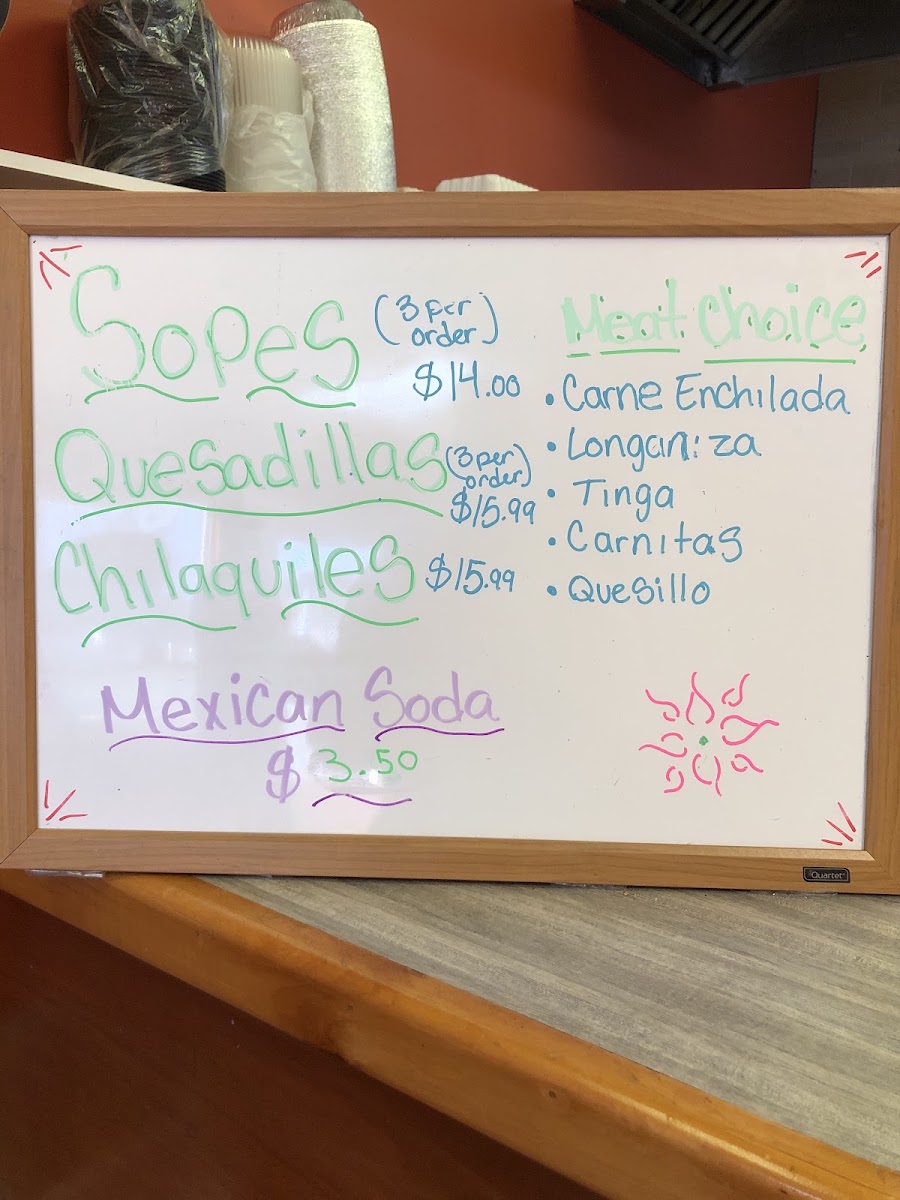 Sopes (3 per order)
$14.00
Quesadillas (3 per order)
$15.99
Chilaquiles $15.99
Mexican Soda
$3.50
Meat Choice
• Carne Enchilada
• Longaniza
• Tinga
• Carnitas
• Quesillo
Quartet